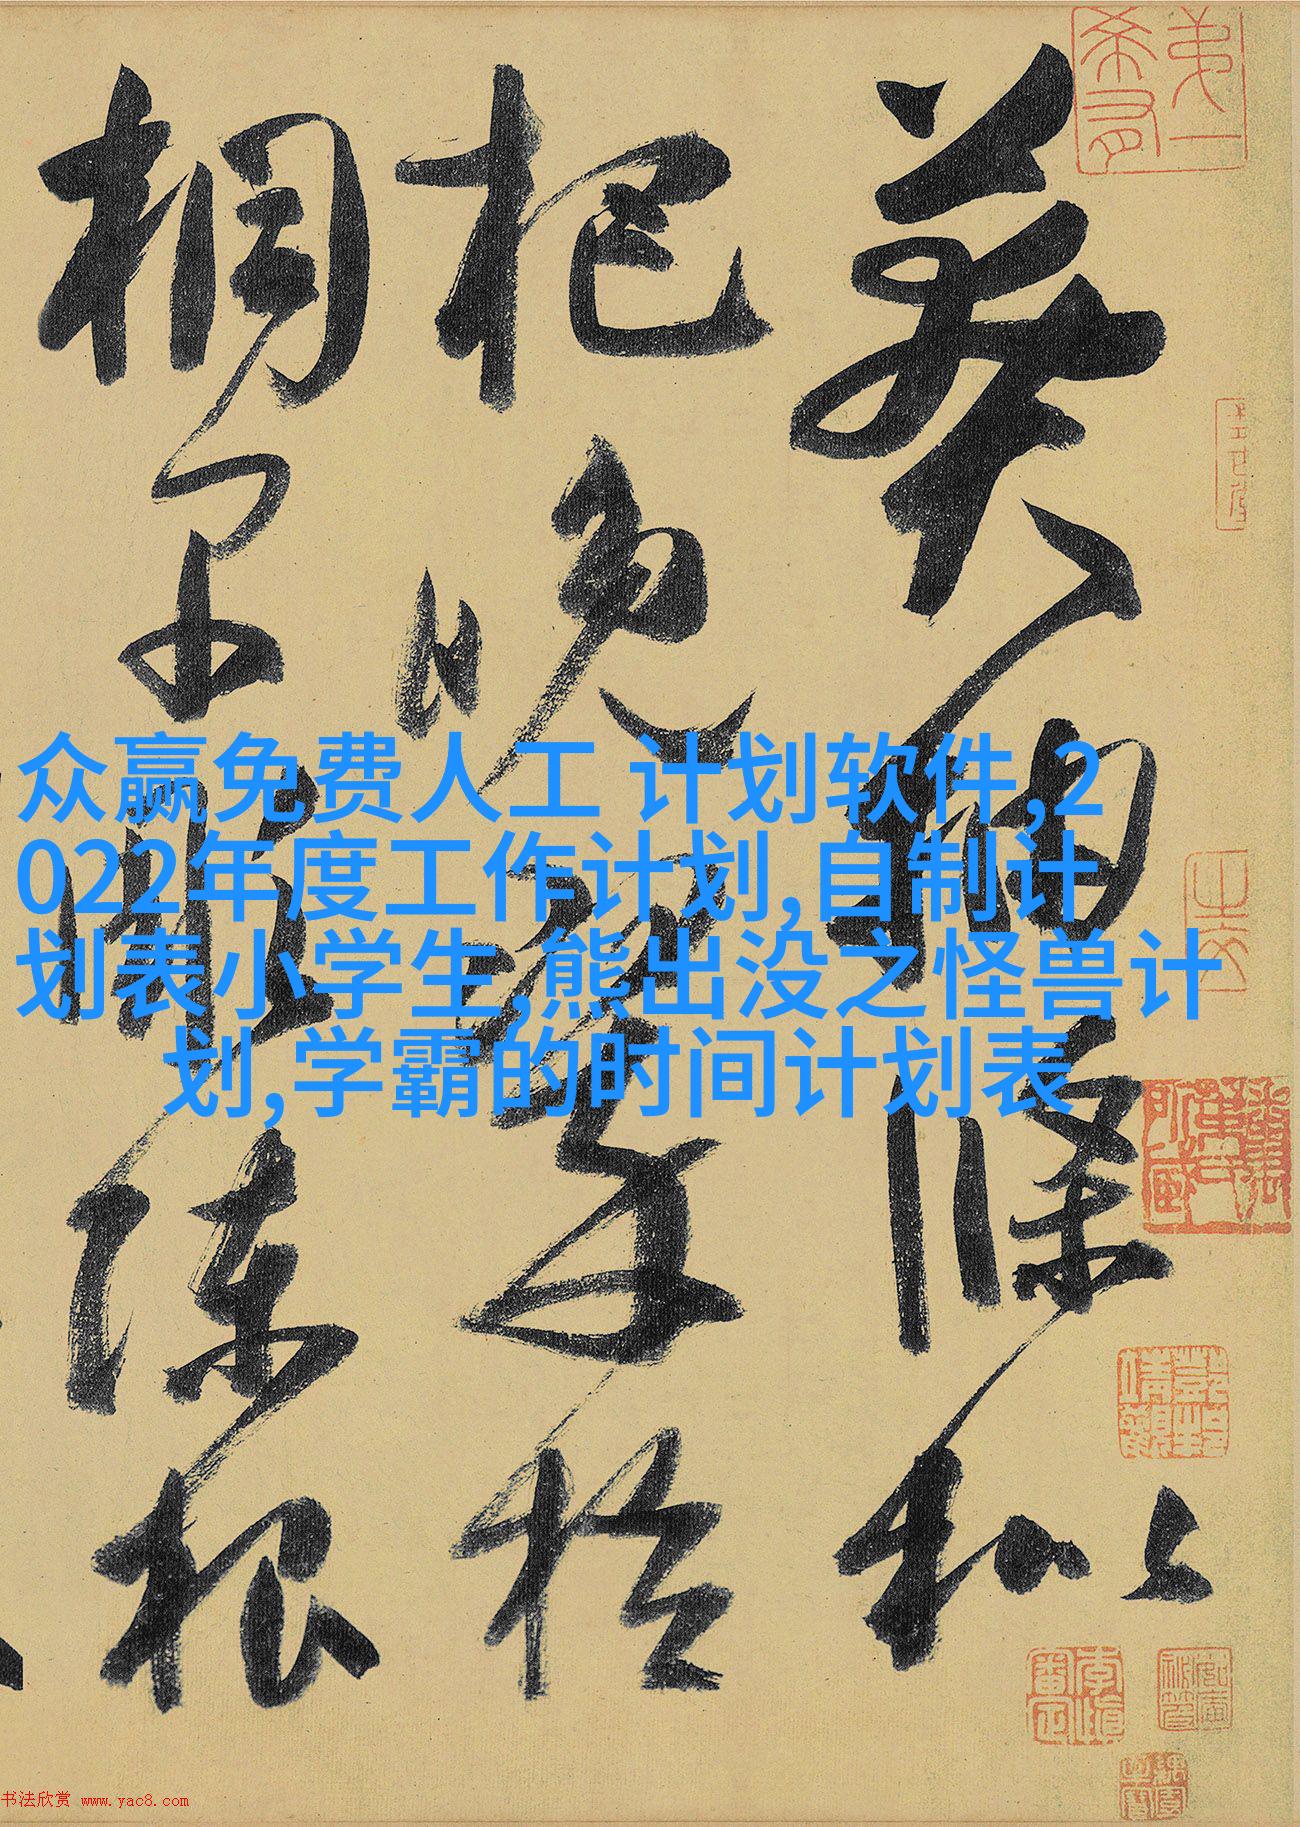 莽抽條枇
杷晚翠梧
桐早凋陳根
众赢免费人工 计划软件,2
022年度工作计划,自制计
划表小学生,熊出没之怪兽计
划,学霸的时间计划表
书法欣赏 www.yac8.com